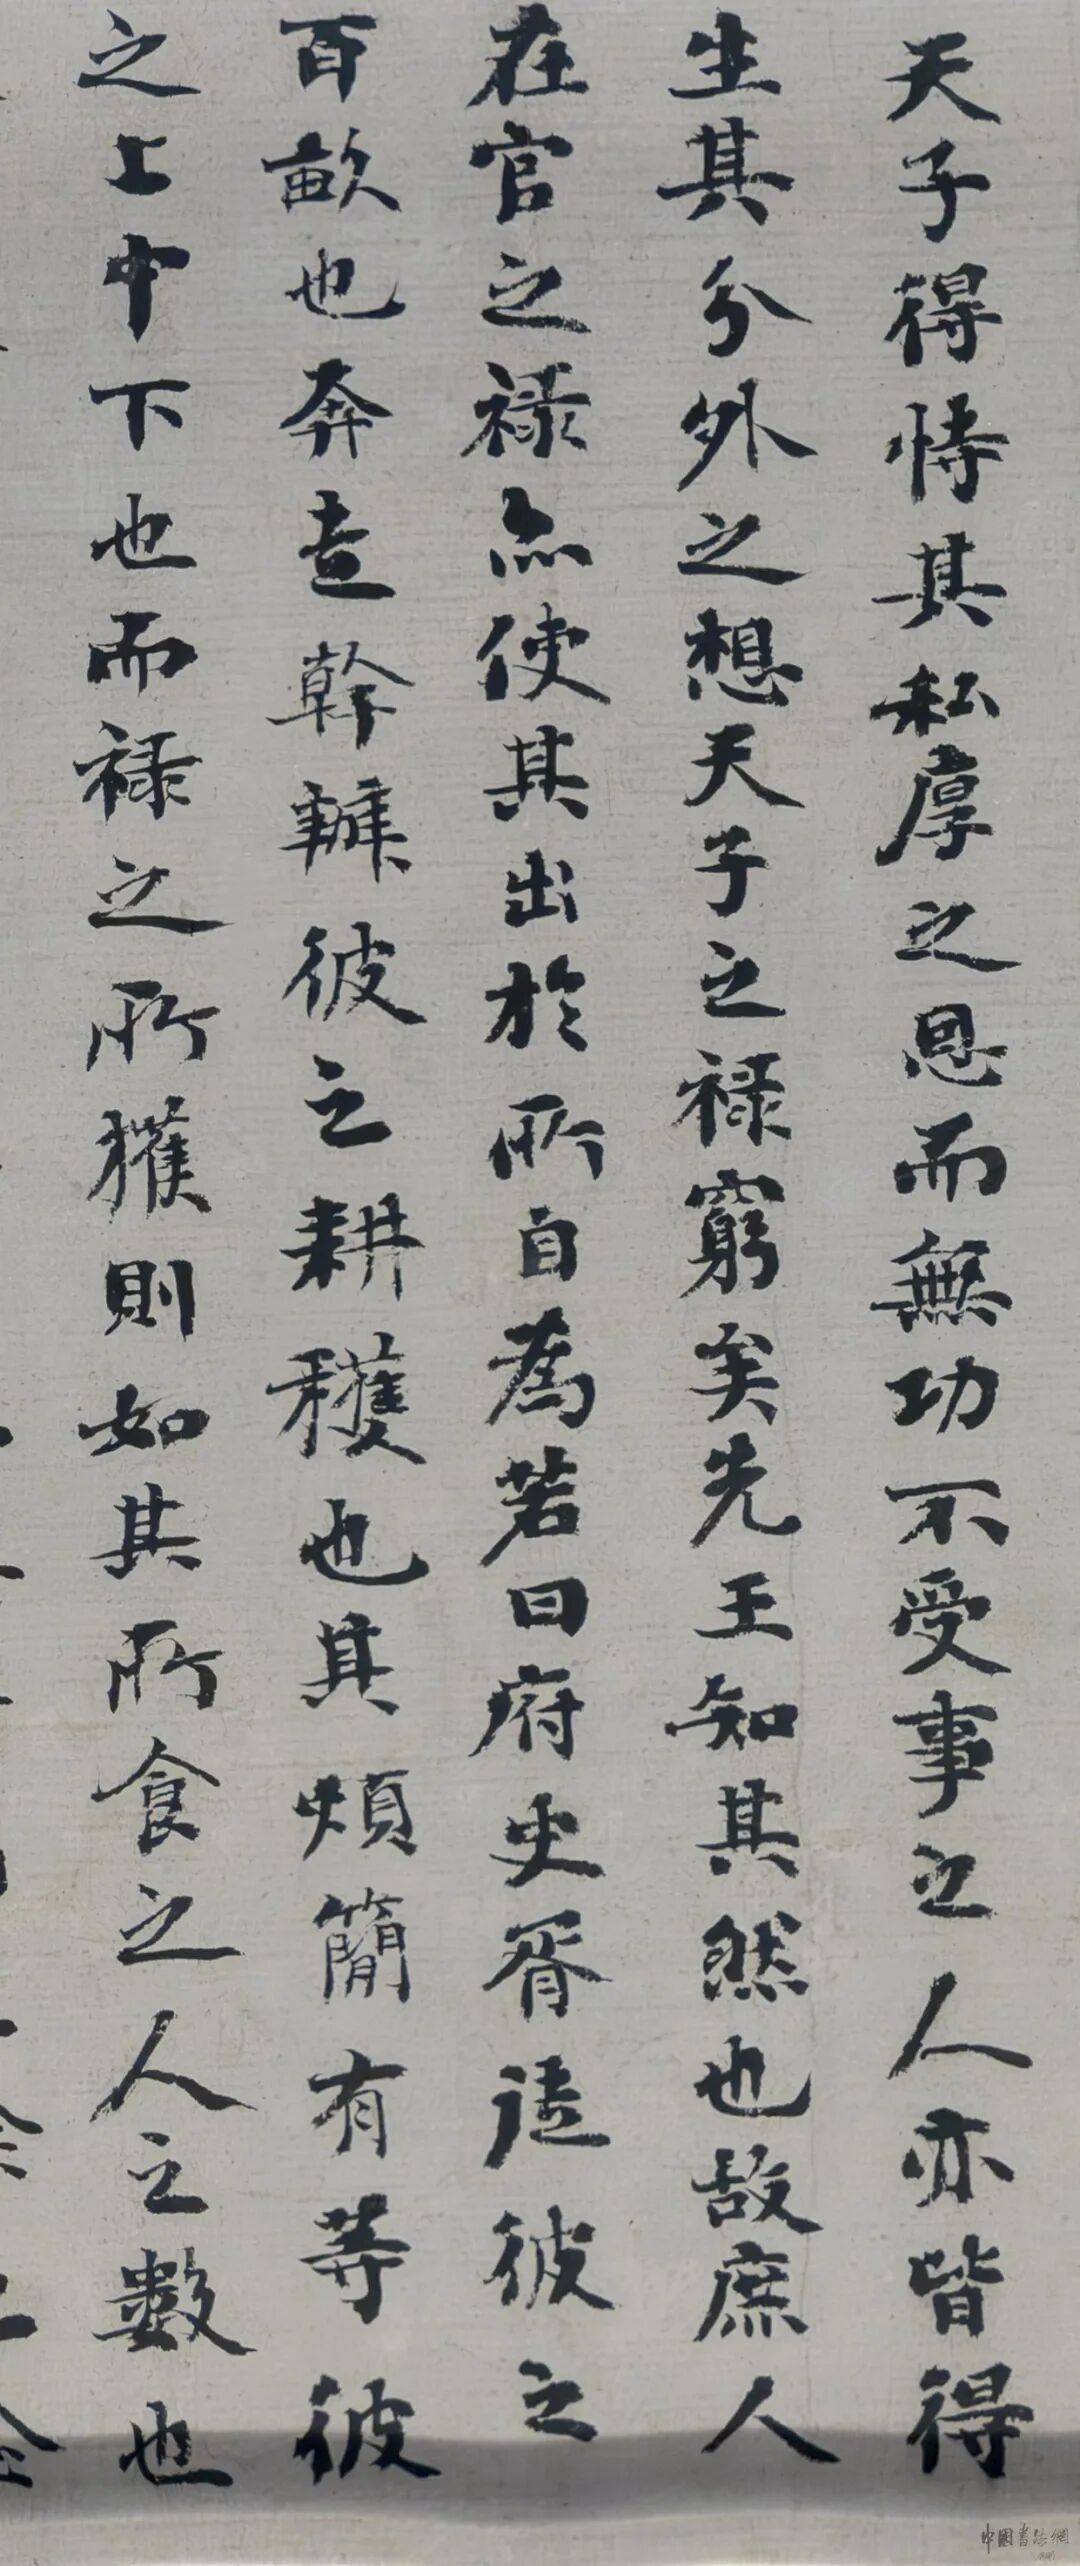 天子得恃其私厚之恩而無功不受事之人亦皆得
生其分外之想天子之禄窮矣先王知其然也故庶人
在官之禄亦使其出於所自為若曰府史胥徒彼之
百畝也奔走幹辦彼之耕穫也其煩簡有等彼
之上中下也而禄之所獲則如其所食之人之數也
中國書法網